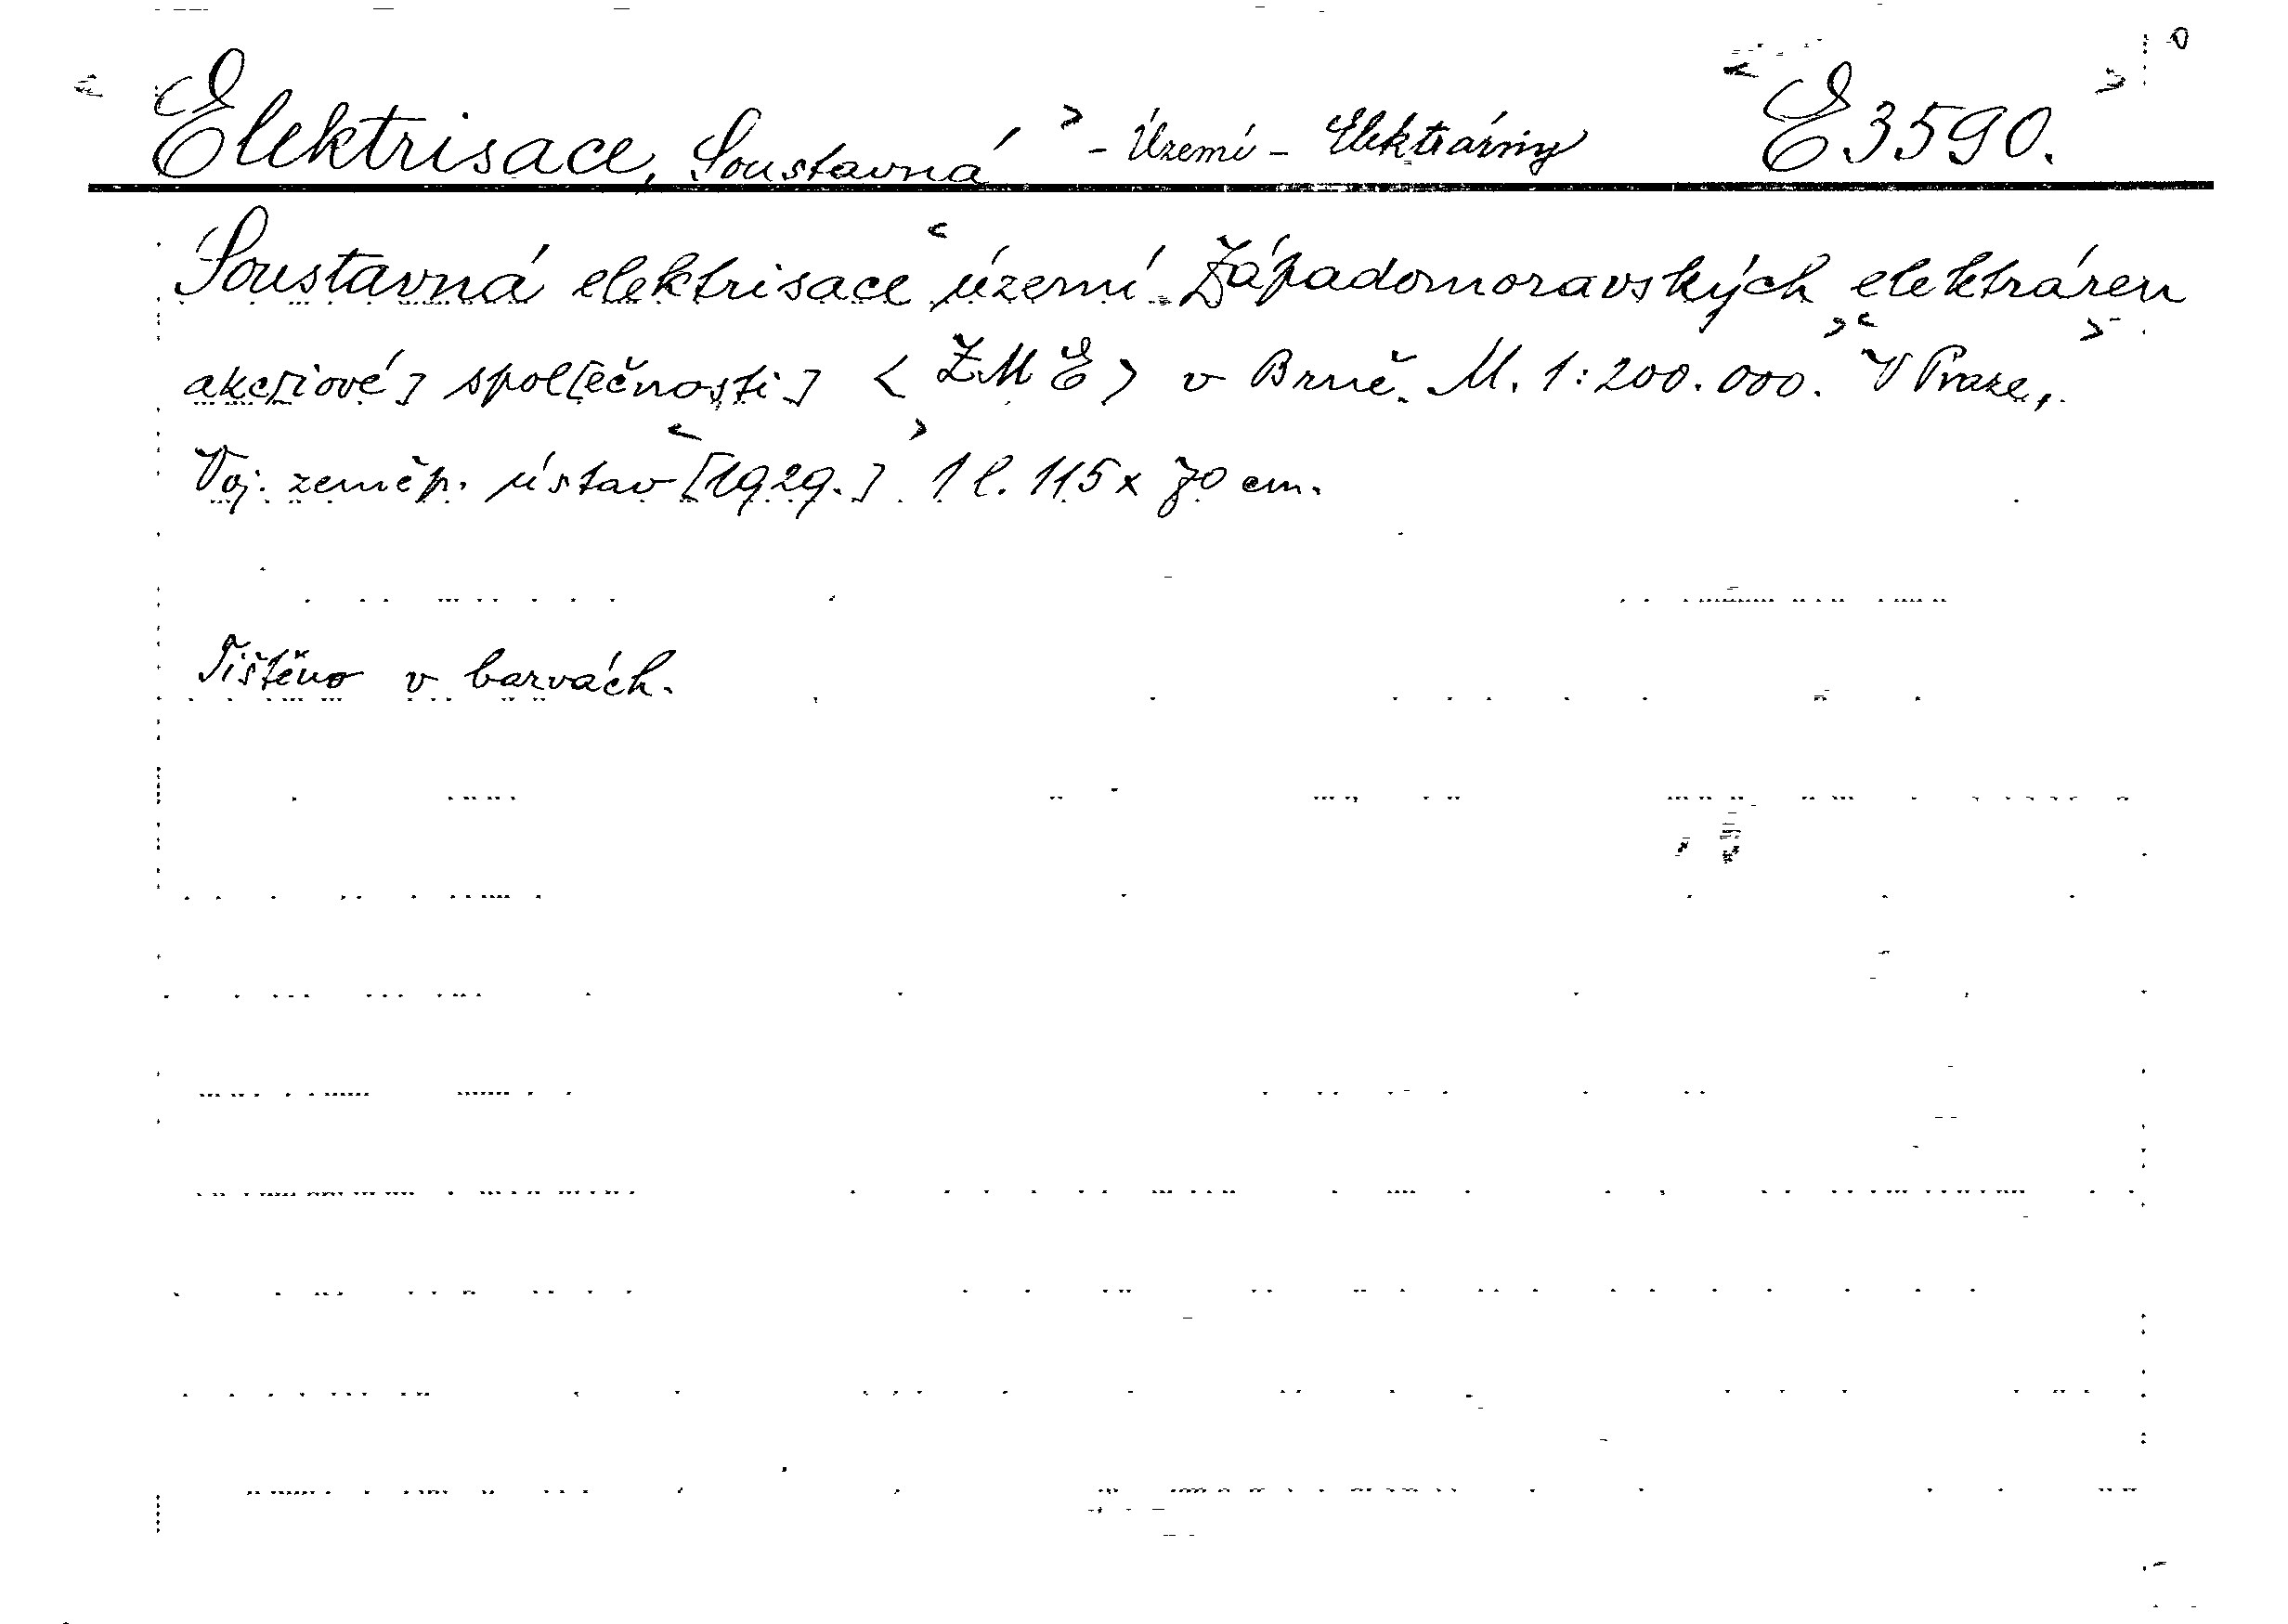 Elektrisace, Soustavná - Území - Elektrárny E 3590.
Soustavná elektrisace území Západomoravských elektráren
akc[iové] spol[ečnosti] < ZME > v Brně. M. 1:200.000. V Praze,
Voj. zeměp. ústav [1929.] 1 l. 115 x 70 cm.
Tištěno v barvách.